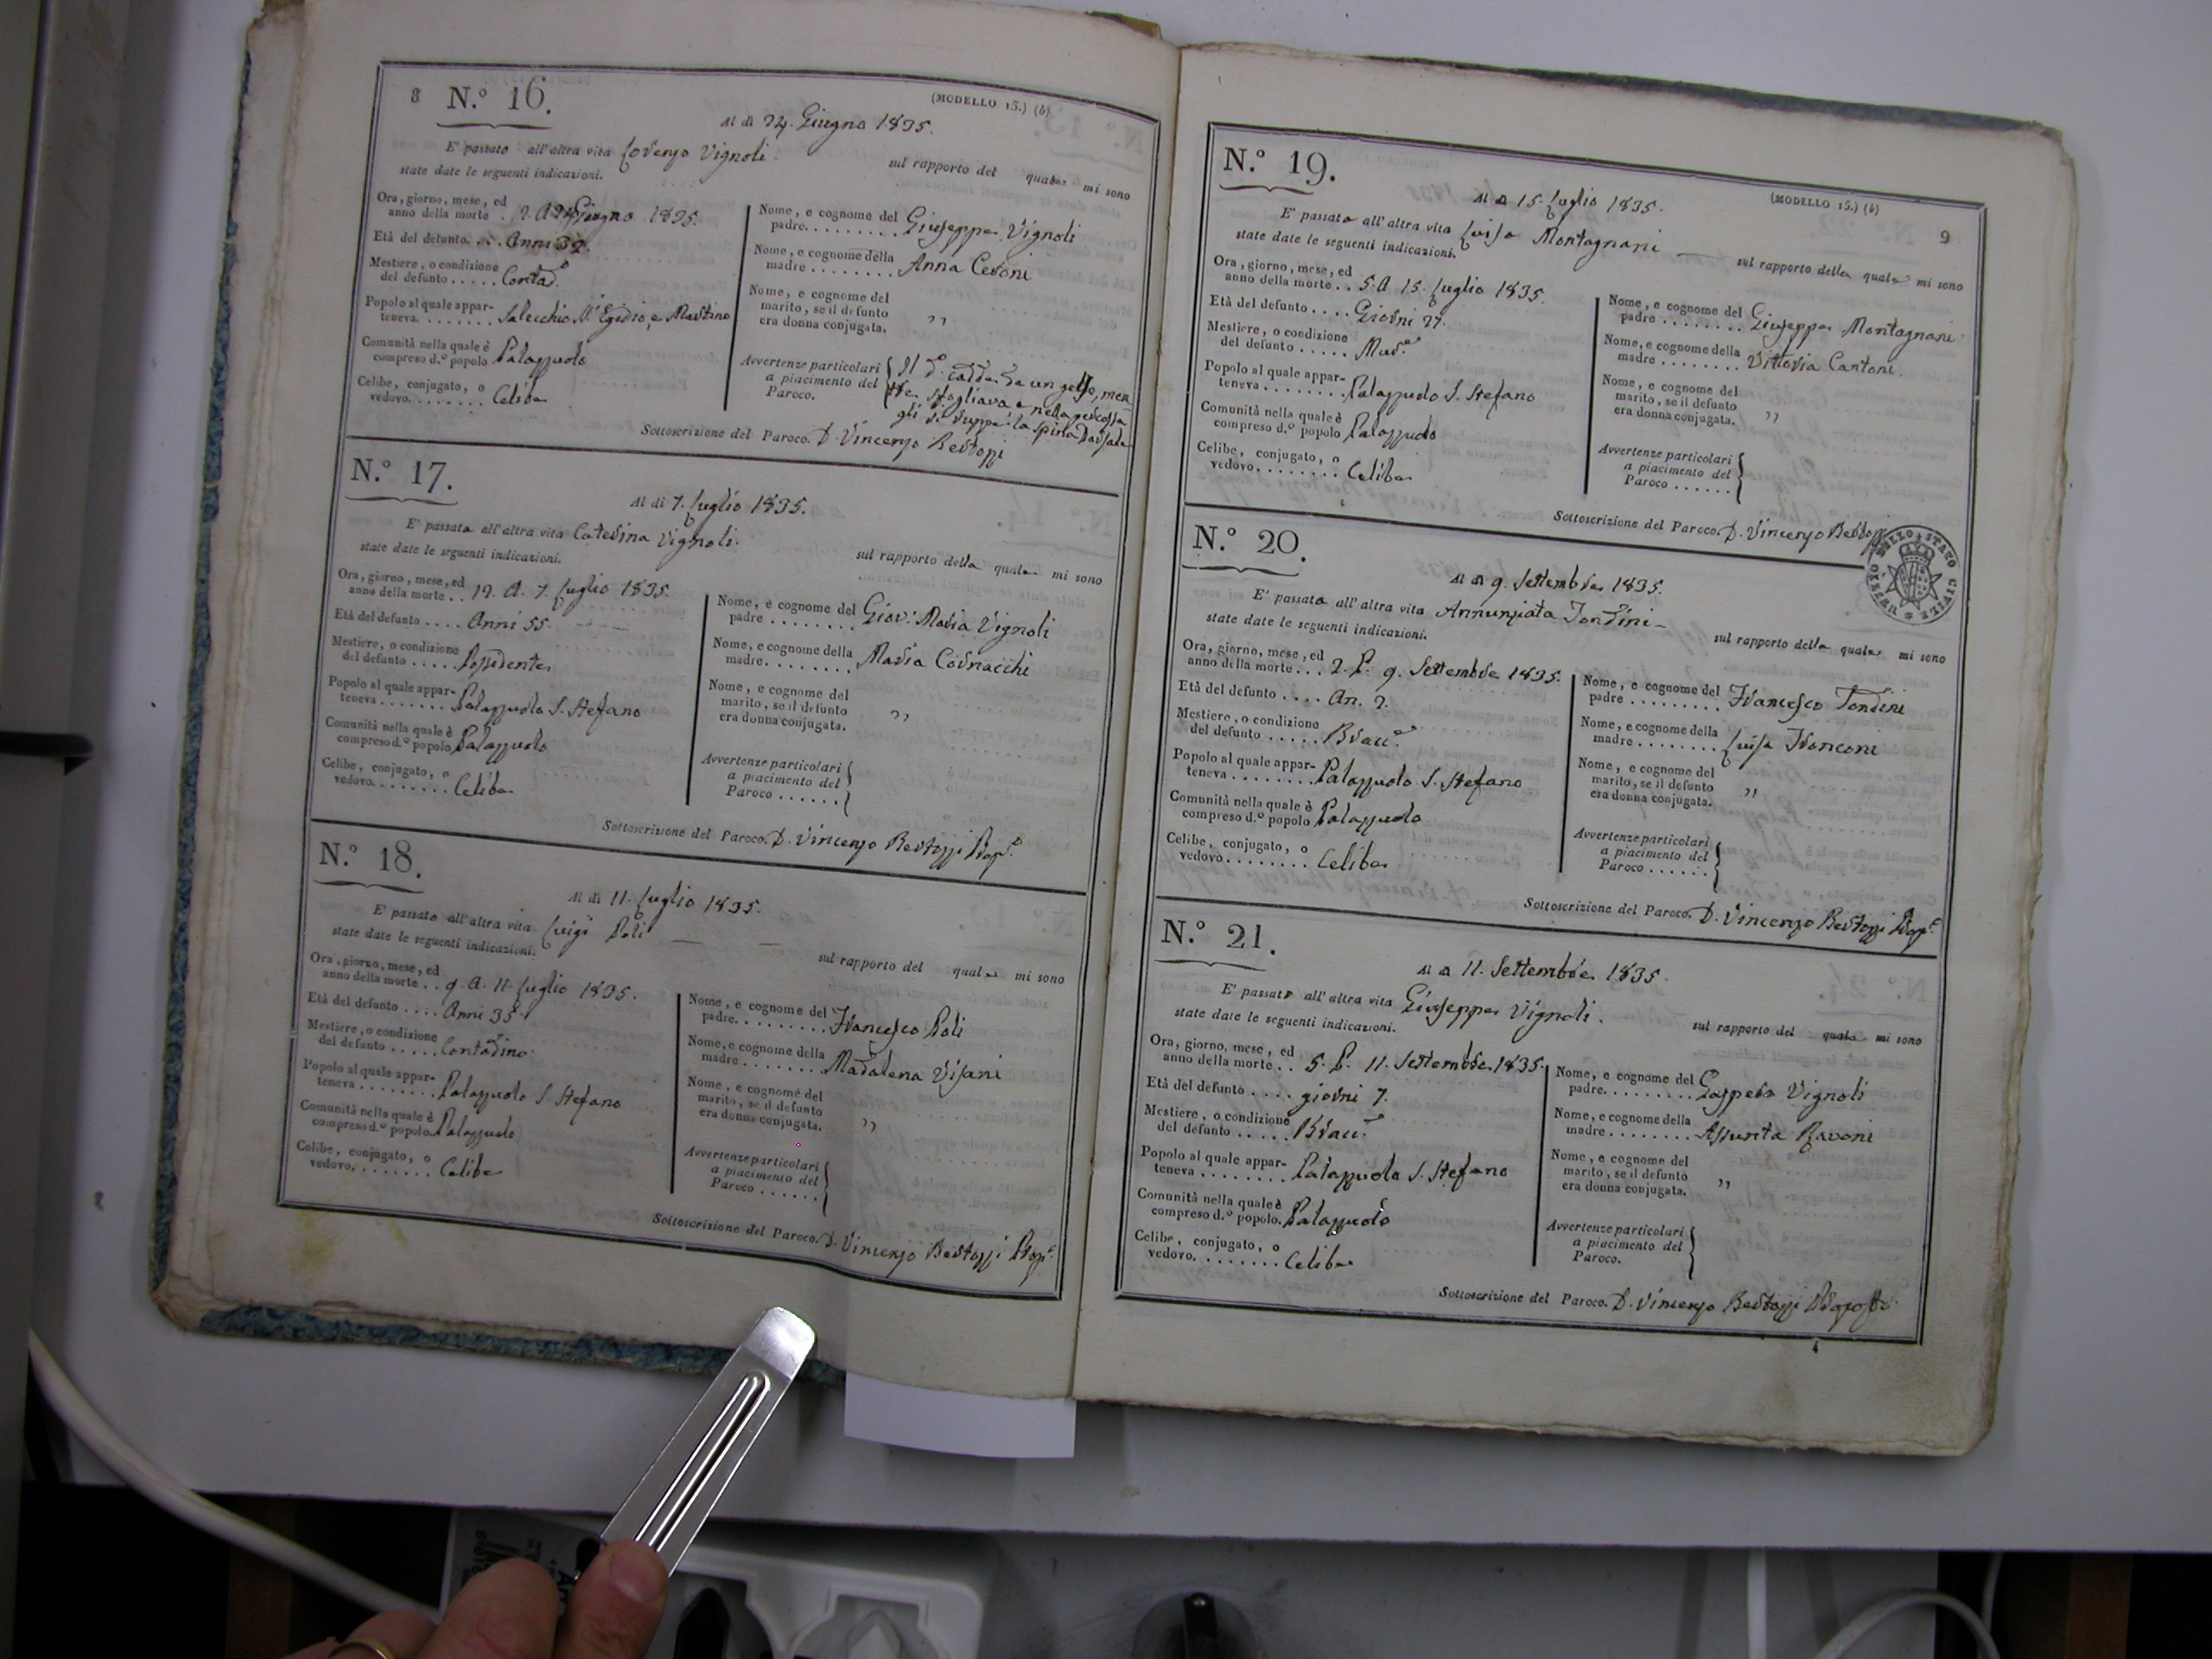 8 N.º 16.
(MODELLO 15.) (b)
Al dì 24. Giugno 1835.
E' passato all'altra vita Lorenzo Vignoli.
sul rapporto del quale mi sono
state date le seguenti indicazioni.
Ora, giorno, mese, ed
anno della morte . 2. A. 24 Giugno 1835.
Età del defunto. . . Anni 32.
Mestiere, o condizione
del defunto . . . . . Contad.
Popolo al quale appar-
teneva. . . . . . . . Salecchio S. Egidio, e Martino
Comunità nella quale è
compreso d.º popolo Palazzuolo
Celibe, conjugato, o
vedovo. . . . . . . . Celibe
Nome, e cognome del
padre. . . . . . . . Giuseppe Vignoli
Nome, e cognome della
madre . . . . . . . . Anna Ceroni
Nome, e cognome del
marito, se il defunto
era donna conjugata. ,,
Avvertenze particolari
a piacimento del
Paroco.
Il d. cadde da un gelso, men-
tre sfogliava e nella percossa
gli si ruppe la spina dorsale
Sottoscrizione del Paroco. D. Vincenzo Bertozzi
N.º 17.
Al dì 7. Luglio 1835.
E' passata all'altra vita Caterina Vignoli.
sul rapporto della quale mi sono
state date le seguenti indicazioni.
Ora, giorno, mese, ed
anno della morte . . 12. A. 7. Luglio 1835.
Età del defunto . . . . Anni 55.
Mestiere, o condizione
del defunto . . . . . Possidente
Popolo al quale appar-
teneva . . . . . . . Palazzuolo S. Stefano
Comunità nella quale è
compreso d.º popolo Palazzuolo
Celibe, conjugato, o
vedovo. . . . . . . . Celibe
Nome, e cognome del
padre . . . . . . . . Giov: Maria Vignoli
Nome, e cognome della
madre. . . . . . . . Maria Cornacchi
Nome, e cognome del
marito, se il defunto
era donna conjugata. ,,
Avvertenze particolari
a piacimento del
Paroco . . . . . .
Sottoscrizione del Paroco. D. Vincenzo Bertozzi Prop.
N.º 18.
Al dì 11. Luglio 1835.
E' passato all'altra vita Luigi Poli
sul rapporto del quale mi sono
state date le seguenti indicazioni.
Ora, giorno, mese, ed
anno della morte . . 9. A. 11. Luglio 1835.
Età del defunto . . . . Anni 35.
Mestiere, o condizione
del defunto . . . . . Contadino
Popolo al quale appar-
teneva . . . . . . . Palazzuolo S. Stefano
Comunità nella quale è
compreso d.º popolo. Palazzuolo
Celibe, conjugato, o
vedovo. . . . . . . . Celibe
Nome, e cognome del
padre. . . . . . . . . Francesco Poli
Nome, e cognome della
madre . . . . . . . . Madalena Visani
Nome, e cognome del
marito, se il defunto
era donna conjugata. ,,
Avvertenze particolari
a piacimento del
Paroco . . . . . .
Sottoscrizione del Paroco. D. Vincenzo Bertozzi Prop.
N.º 19.
(MODELLO 15.) (b)
9
Al dì 15. Luglio 1835.
E' passata all'altra vita Luisa Montagnani
sul rapporto della quale mi sono
state date le seguenti indicazioni.
Ora, giorno, mese, ed
anno della morte . . 5. A 15. Luglio 1835.
Età del defunto . . . . Giorni 27.
Mestiere, o condizione
del defunto . . . . .
Popolo al quale appar-
teneva . . . . . . . . Palazzuolo S. Stefano
Comunità nella quale è
compreso d.º popolo Palazzuolo
Celibe, conjugato, o
vedovo. . . . . . . . Celibe
Nome, e cognome del
padre . . . . . . . . Giuseppe Montagnani
Nome, e cognome della
madre . . . . . . . . Vittoria Cantoni.
Nome, e cognome del
marito, se il defunto
era donna conjugata. ,,
Avvertenze particolari
a piacimento del
Paroco . . . . . .
Sottoscrizione del Paroco. D. Vincenzo Bertozzi
BOLLO STATO CIVILE
N.º 20.
Al dì 9. Settembre 1835.
E' passata all'altra vita Annunziata Tondini
sul rapporto della quale mi sono
state date le seguenti indicazioni.
Ora, giorno, mese, ed
anno della morte . . . 2. P. 9. Settembre 1835.
Età del defunto . . . . An. 2.
Mestiere, o condizione
del defunto . . . . . Bracc.
Popolo al quale appar-
teneva . . . . . . . . Palazzuolo S. Stefano
Comunità nella quale è
compreso d.º popolo Palazzuolo
Celibe, conjugato, o
vedovo. . . . . . . . Celibe
Nome, e cognome del
padre . . . . . . . . . Francesco Tondini
Nome, e cognome della
madre . . . . . . . . Luisa Franconi
Nome, e cognome del
marito, se il defunto
era donna conjugata. ,,
Avvertenze particolari
a piacimento del
Paroco . . . . . .
Sottoscrizione del Paroco. D. Vincenzo Bertozzi Prop.
N.º 21.
Al dì 11. Settembre 1835.
E' passato all'altra vita Giuseppe Vignoli.
sul rapporto del quale mi sono
state date le seguenti indicazioni.
Ora, giorno, mese, ed
anno della morte . . 5. P. 11. Settembre 1835.
Età del defunto . . . . giorni 7.
Mestiere, o condizione
del defunto . . . . . Bracc.
Popolo al quale appar-
teneva . . . . . . . . Palazzuolo S. Stefano
Comunità nella quale è
compreso d.º popolo. Palazzuolo
Celibe, conjugato, o
vedovo. . . . . . . . Celibe
Nome, e cognome del
padre. . . . . . . . . Gasparo Vignoli
Nome, e cognome della
madre . . . . . . . . Assunta Bavoni
Nome, e cognome del
marito, se il defunto
era donna conjugata. ,,
Avvertenze particolari
a piacimento del
Paroco.
Sottoscrizione del Paroco. D. Vincenzo Bertozzi Proposto